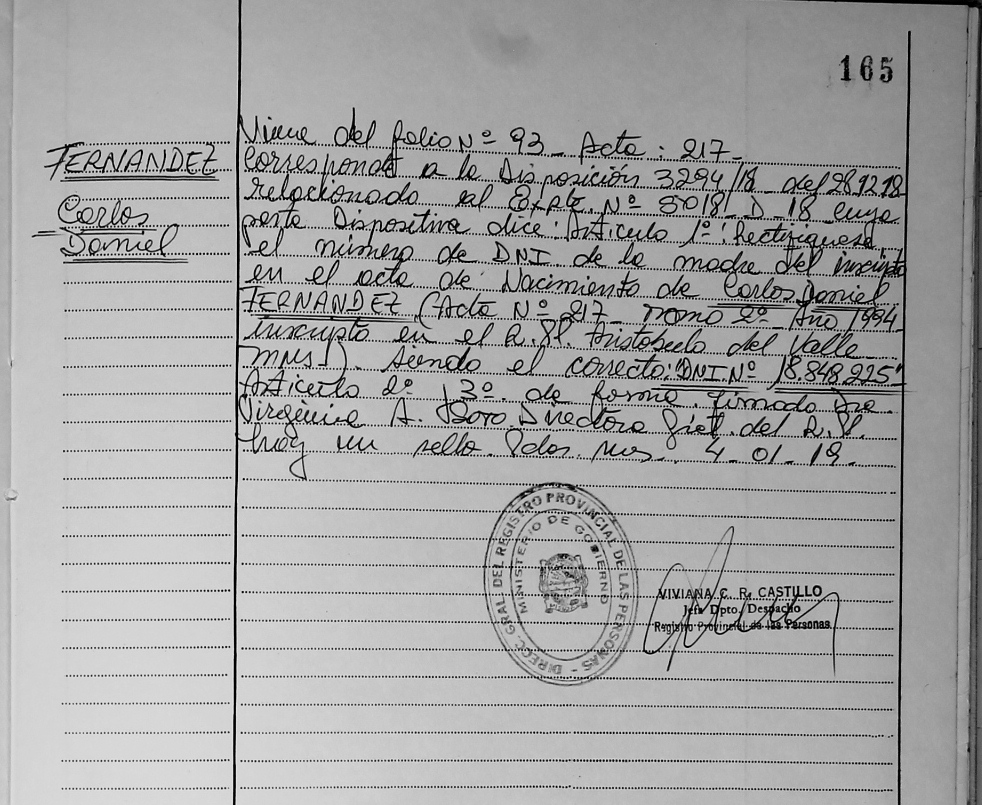 165
FERNANDEZ
Carlos
Daniel
Viene del folio Nº 93 - Acta : 217 -
Corresponde a la Disposición 3294/18 - del 28.12.18
relacionado al Expte. Nº 5018 - D - 18 cuya
parte Dispositiva dice: Artículo 1º: Rectifíquese
el número de DNI de la madre del inscripto
en el acta de Nacimiento de Carlos Daniel
FERNANDEZ (Acta Nº 217 - Tomo 2º - Año 1994 -
inscripto en el R.P. Aristóbulo del Valle
Mns.). siendo el correcto: "DNI. Nº 18.848.225"
Artículo 2º 3º de forma. firmado Dra.
Virginia A. Directora Gral. del R.P.
hay un sello. Pdas. Mns. 4 - 01 - 19 -
DIRECC. GRAL DEL REGISTRO PROVINCIAL DE LAS PERSONAS -
MINISTERIO DE GOBIERNO
VIVIANA C. R. CASTILLO
Jefa Dpto. Despacho
Registro Provincial de las Personas